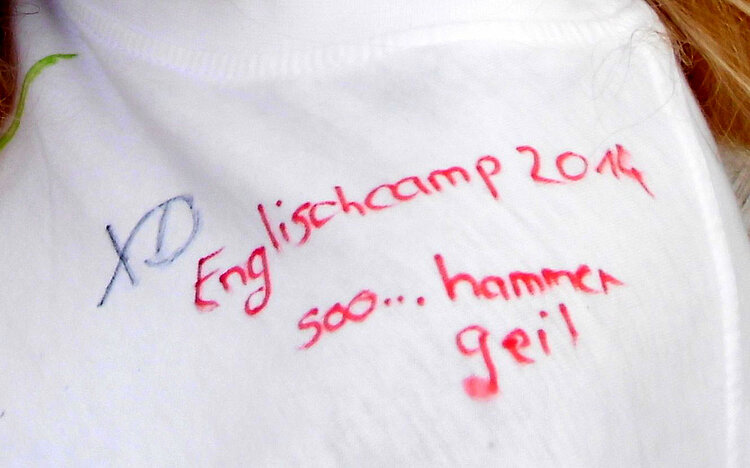 XD
Englischcamp 2014
soo... hammer
geil